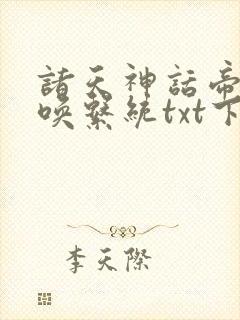 諸天神話帝
喚繫統txt下
李天際